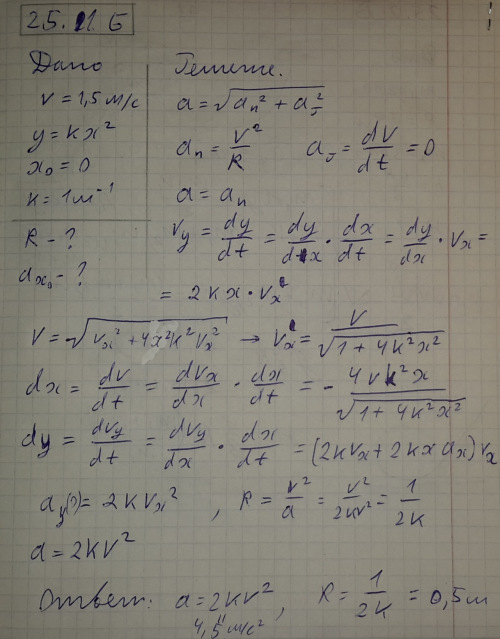 25.11 Б
Дано
Решение.
v = 1,5 м/с
y = kx²
x₀ = 0
k = 1 м⁻¹
R - ?
aₓ₀ - ?
a = √(aₙ² + a_τ²)
aₙ = V²/R   a_τ = dV/dt = 0
a = aₙ
v_y = dy/dt = dy/dx · dx/dt = dy/dx · vₓ =
= 2kx · vₓ
V = √(vₓ² + 4x²k²vₓ²) → vₓ = V/√(1 + 4k²x²)
dx = dv/dt = dvₓ/dx · dx/dt = - 4vk²x/√(1 + 4k²x²)
dy = dv_y/dt = dv_y/dx · dx/dt = (2kvₓ + 2kx aₓ) vₓ
a_y(0) = 2kvₓ² , R = v²/a = v²/2kv² = 1/2k
a = 2kv²
Ответ: a = 2kv² , R = 1/2k = 0,5 м
4,5 м/с²